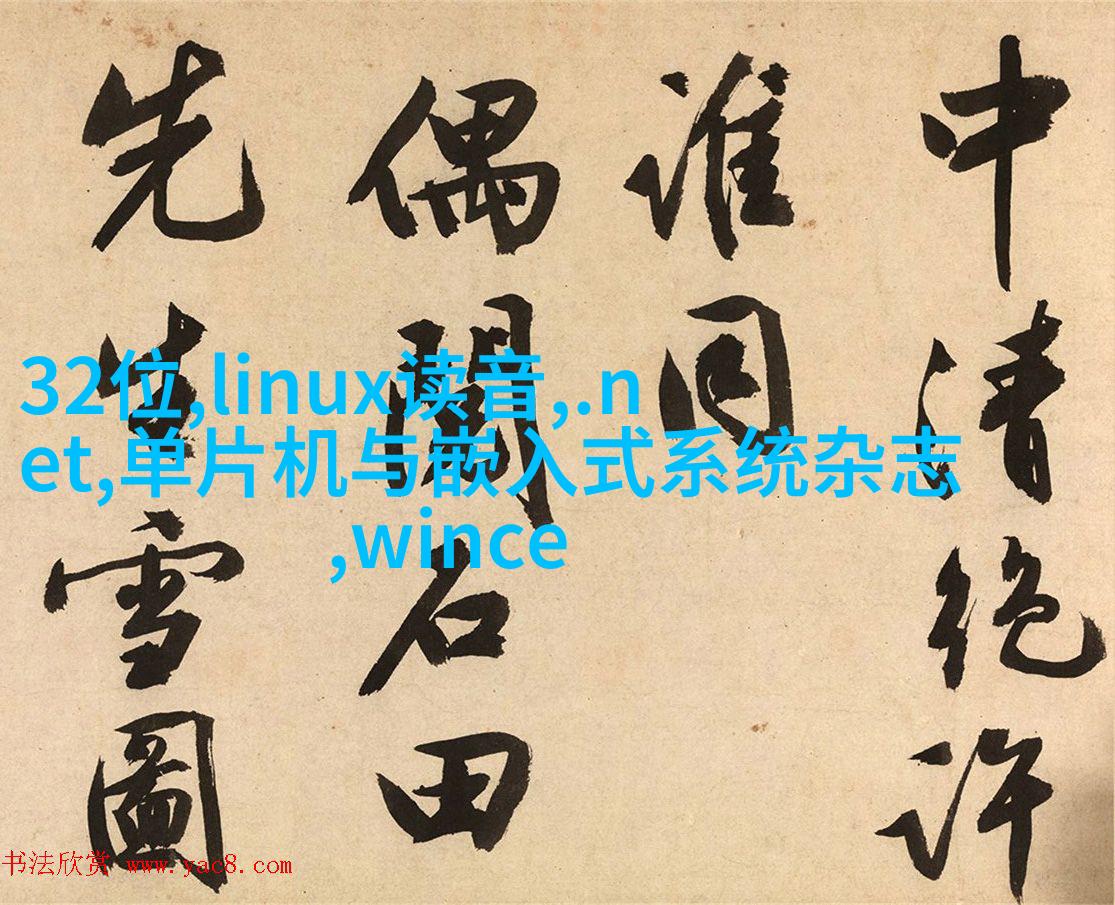 中清絶許
誰同
偶閱石田
先生雪圖
32位,linux读音,.n
et,单片机与嵌入式系统杂志
,wince
书法欣赏 www.yac8.com